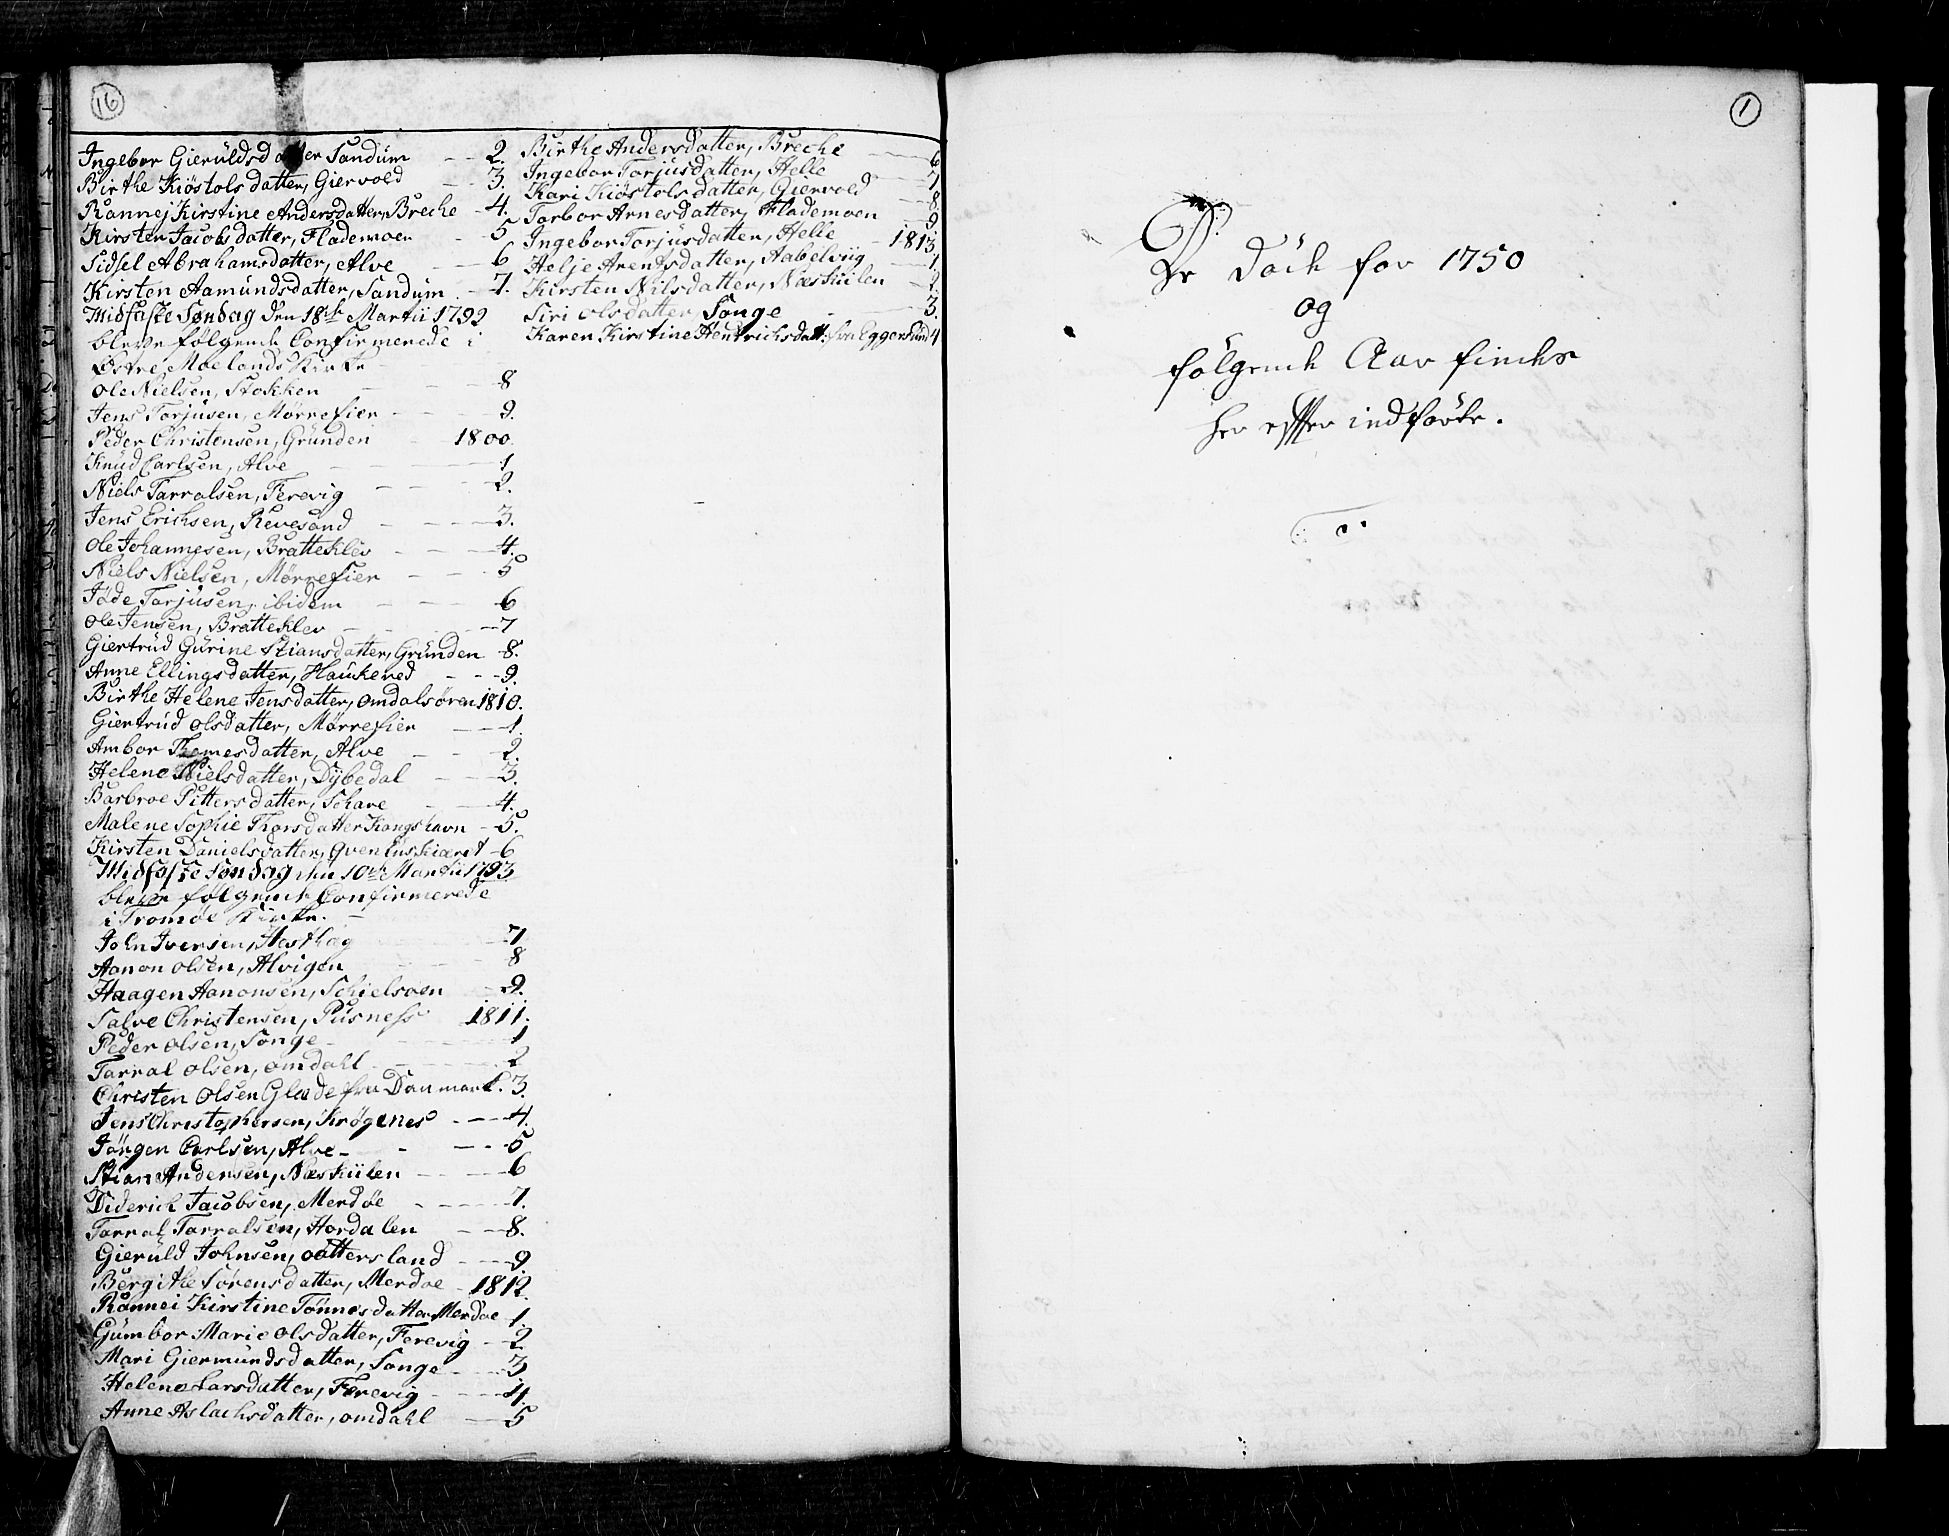 16
Ingebor Gieruldsdatter Sandum - - 2.
Birthe Kiøstolsdatter, Giervold - - 3.
Rønnej Kirstine Andersdatter, Breche - 4.
Kirsten Jacobsdatter, Flademoen - 5
Sidsel Abrahamsdatter, Alve - - 6
Kirsten Aamundsdatter, Sandum - 7.
Midfaste Søndag den 18de Martii 1792
bleve følgende Confirmerede i
Østre Moelands Kirke
Ole Nielsen, Stokken - - 8
Jens Torjusen, Mørrefier - - - 9.
Peder Christensen, Grunden - 1800.
Knud Carlsen, Alve - - - 1
Niels Tarralsen, Ferevig - - - 2.
Jens Erichsen, Revesand - - - 3.
Ole Johannesen, Bratteklev - - - 4.
Niels Nielsen, Mørrefier - - - 5
Jøde Torjusen, ibidem - - - 6
Ole Jensen, Bratteklev - - - 7
Giertrud Gurine Stiansdatter, Grunden 8.
Anne Ellingsdatter, Haukered - - - 9.
Birthe Helene Jensdatter, Omdalsøren 1810.
Giertrud Olsdatter, Mørrefier - - 1.
Ambor Thomesdatter, Alve - - - 2.
Helene Nielsdatter, Dybedal - - - 3.
Barbroe Pittersdatter, Schare - - 4.
Malene Sophie Thorsdatter Kongshavn - 5.
Kirsten Danielsdatter, Qvenluskiæret - 6
Midfaste Søndag den 10de Martii 1793
bleve følgende Confirmerede
i Tromøe Kirke.
John Iversen, Hasthag - - - 7
Aanon Olsen, Alvigen - - - 8
Haagen Aanonsen, Schielsvoen - 9.
Salve Christensen, Pusness 1811.
Peder Olsen, Songe - - - 1
Tarral Olsen, Omdahl - - - 2
Christen Olsen Glade fra Danmark. 3.
Jens Christophersen, Krøgenes - - - 4.
Jørgen Carlsen, Alve - - - 5
Stian Andersen, Næskiilen - - - 6
Diderich Jacobsen, Merdøe - - - 7.
Tarral Tarralsen, Hordalen - - - 8.
Gieruld Johnsen, Oattersland - - - 9
Bergithe Sørensdatter, Merdøe - 1812.
Rønnei Kirstine Tønnesdatter Merdøe 1.
Gumbor Marie Olsdatter, Ferevig - - 2
Mari Giermundsdatter, Songe - - 3
Helene Larsdatter, Færevig - - - 4.
Anne Aslachsdatter, Omdahl - - 5
Birthe Andersdatter, Breche - - 6
Ingebor Torjusdatter, Helle - - 7
Kari Kiøstolsdatter, Giervold - - 8
Tarbor Arnesdatter, Flademoen - 9
Ingebor Torjusdatter, Helle - 1813.
Helje Arentsdatter, Aabelviig - 1
Kirsten Nilsdatter, Næskiilen - 2.
Siri Olsdatter, Songe - - 3.
Karen Kirstine Hendrichsdatt: fra Eggersund 4
1
De Døde for 1750
og
følgende Aar findes
her efter indførte.